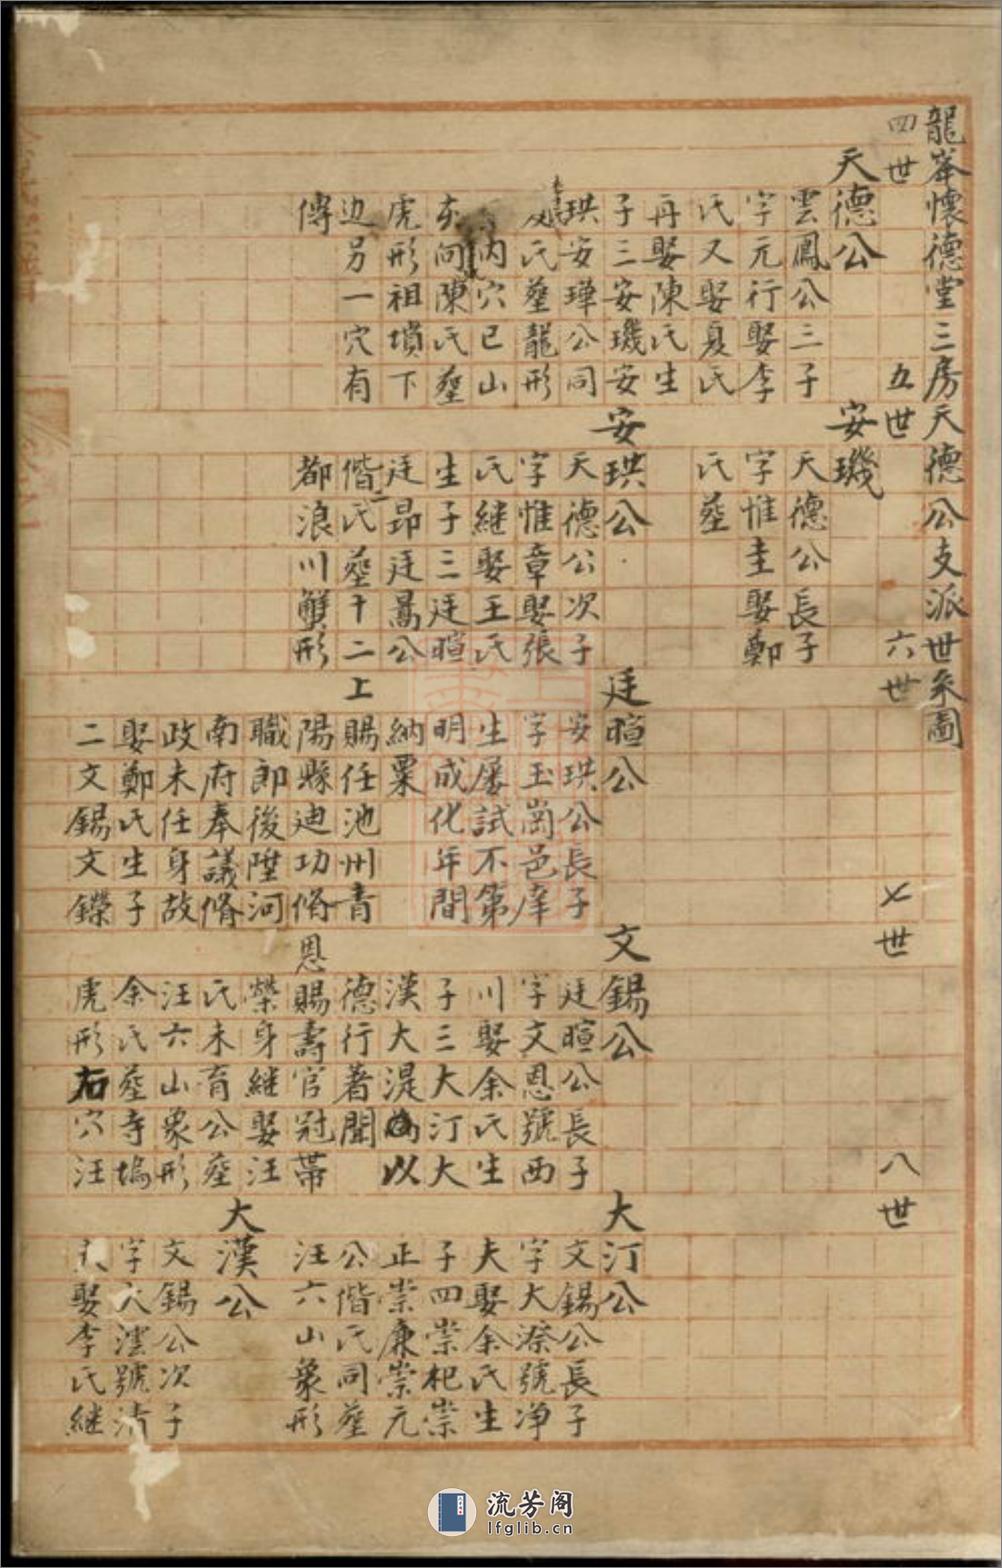 龍峯懷德堂三房天德公支派世系圖
四世
五世
六世
七世
八世
天德公
雲鳳公三子
字元行娶李
氏又娶夏氏
再娶陳氏生
子三安璣安
珙安瑋公同
氏塟龍形
內穴巳山
亥向陳氏塟
虎形祖墳下
边另一穴有
傳
安璣
天德公長子
字惟圭娶鄭
氏塟
安珙公
天德公次子
字惟章娶張
氏継娶王氏
生子三廷暄
廷昂廷暠公
偕二氏塟十二
都浪川蟹形
廷暄公
安珙公長子
字玉崗邑庠
生屡試不第
明成化年間
納粟
上賜任池州青
陽縣迪功俻
職郎後陞河
南府奉議俻
政未任身故
娶鄭氏生子
二文錫文鑅
文錫公
廷暄公長子
字文恩號西
川娶余氏生
子三大汀大
漢大湜以
德行著聞
恩賜壽官冠帶
榮身継娶汪
氏未育公塟
汪六山象形
余氏塟寺塢
虎形右穴汪
大汀公
文錫公長子
字大深號净
夫娶余氏生
子四崇杞崇
正崇廉崇元
公偕氏同塟
汪六山象形
大漢公
文錫公次子
字大澐號清
娶李氏継
流芳阁
lfglib.cn